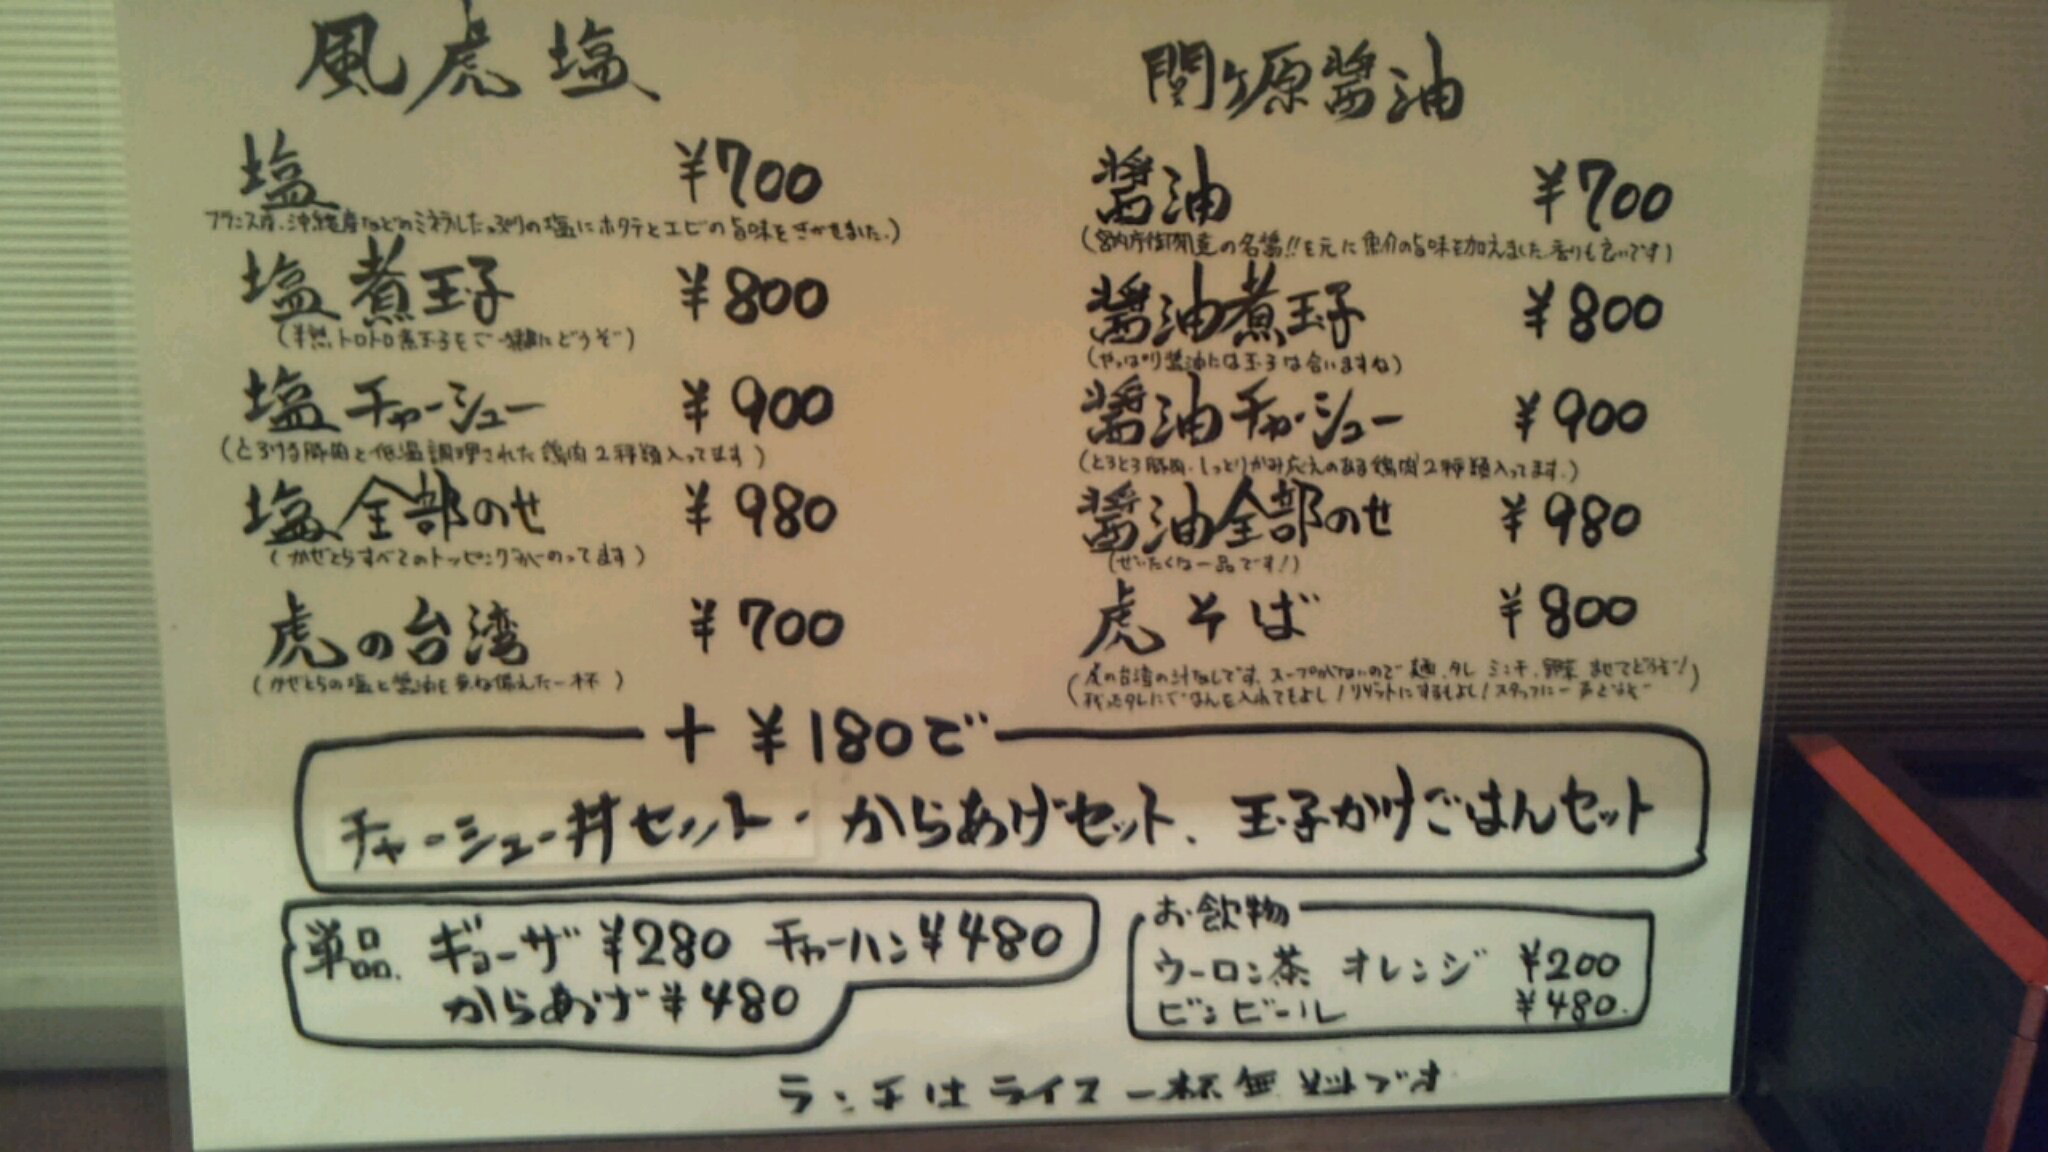 風虎塩
塩 ¥700
フランス産、沖縄産などのミネラルたっぷりの塩にホタテとエビの旨味をきかせました。)
塩煮玉子 ¥800
(半熟トロトロ煮玉子をご一緒にどうぞ)
塩チャーシュー ¥900
(とろける豚肉と低温調理された鶏肉2種類入ってます)
塩全部のせ ¥980
(かぜとらすべてのトッピングがのってます)
虎の台湾 ¥700
(かぜとらの塩と醤油を兼ね備えた一杯)
関ヶ原醤油
醤油 ¥700
(宮内庁御用達の名醤!!を元に魚介の旨味を加えました。香りも良いです)
醤油煮玉子 ¥800
(やっぱり醤油には玉子は合いますね)
醤油チャーシュー ¥900
(とろとろ豚肉、しっとりかみ応えのある鶏肉2種類入ってます。)
醤油全部のせ ¥980
(ぜいたくな一品です!)
虎そば ¥800
(虎の台湾の汁なしです。スープがないので麺、タレ、ミンチ、野菜 まぜてどうぞ!
残ったタレにごはんを入れてもよし!リゾットにするもよし!スタッフに一声どうぞ)
+¥180で
チャーシュー丼セット・からあげセット、玉子かけごはんセット
単品 ギョーザ ¥280 チャーハン ¥480
からあげ ¥480
お飲物
ウーロン茶 オレンジ ¥200
ビンビール ¥480.
ランチはライス一杯無料です